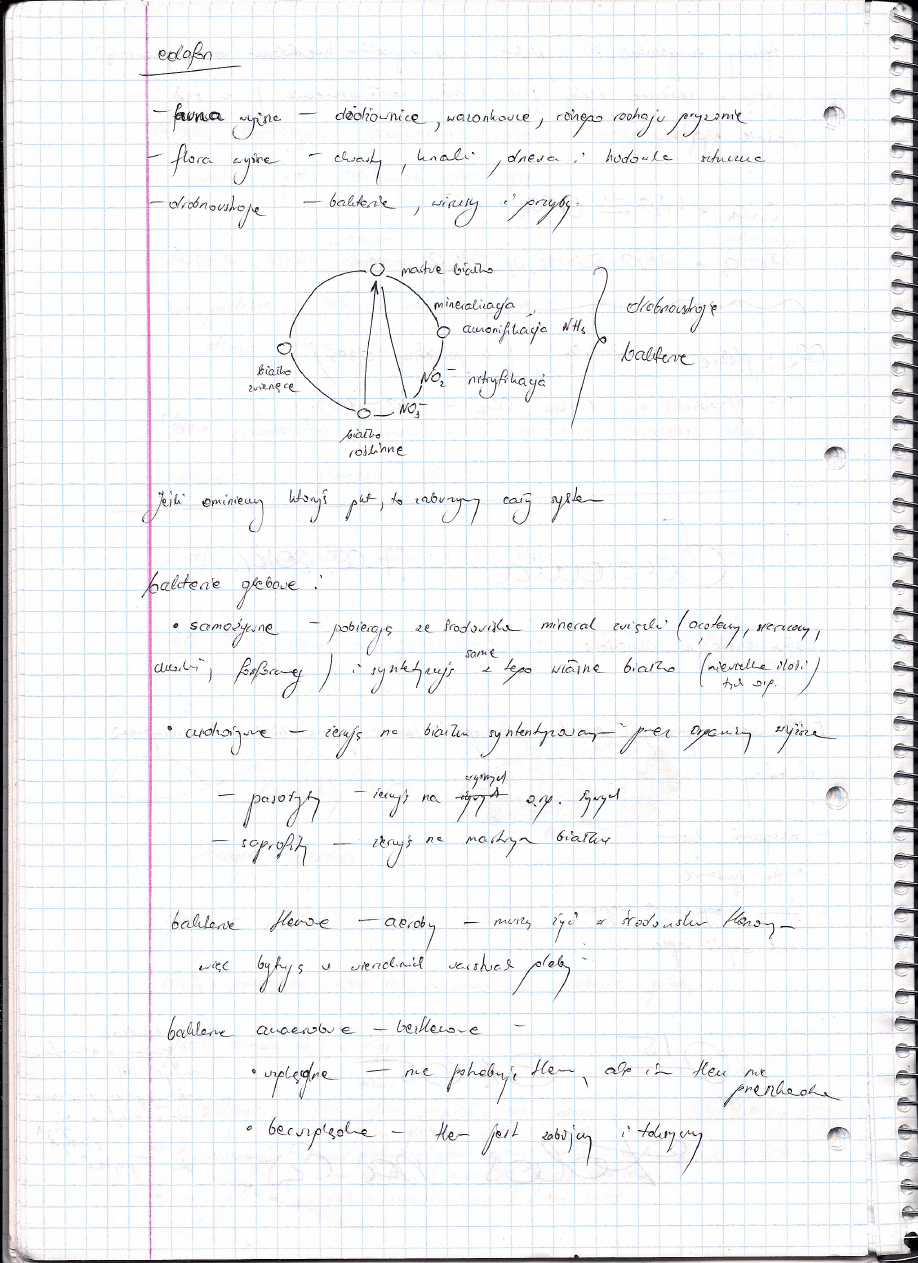 edafon
- fauna wyższe - dżdżownice, wazonkowce, różnego rodzaju
- flora wyższe - chwasty, krzaki, drzewa i hodowle sztuczne
- drobnoustroje - bakterie, wirusy i grzyby.
martwe białko
mineralizacja
amonifikacja NH₃
NO₂⁻ nitryfikacja
NO₃⁻
białko
zwierzęce
białko
roślinne
drobnoustroje
bakterie
Jeśli ominiemy któryś pkt, to zaburzymy cały system
bakterie glebowe :
• samożywne - pobierają ze środowiska mineral związki (azotowy, siarkowy,
fosforowy) i syntetyzują same z tego własne białko (niewielkie ilości
tych org.
• cudzożywne - żerują na białku syntentyzowanym przez organizmy wyższe
- pasożyty - żerują na wyższych org. żywych
- saprofity - żerują na martwym białku
bakterie tlenowe - aeroby - muszą żyć w środowisku tlenowym
więc bytują w wierzchnich warstwach gleby
bakterie anaerobowe - beztlenowe -
• względne - nie potrzebują tlenu, ale im tlen nie
przeszkadza
• bezwzględne - tlen jest zabójczy i toksyczny